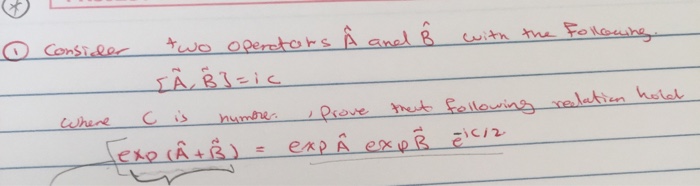 (*)
① Consider two operators Â and B̂ with the following.
[Â, B̂] = ic
where C is number. , Prove that following relation hold
exp(Â + B̂) = exp Â exp B̂ e^-ic/2